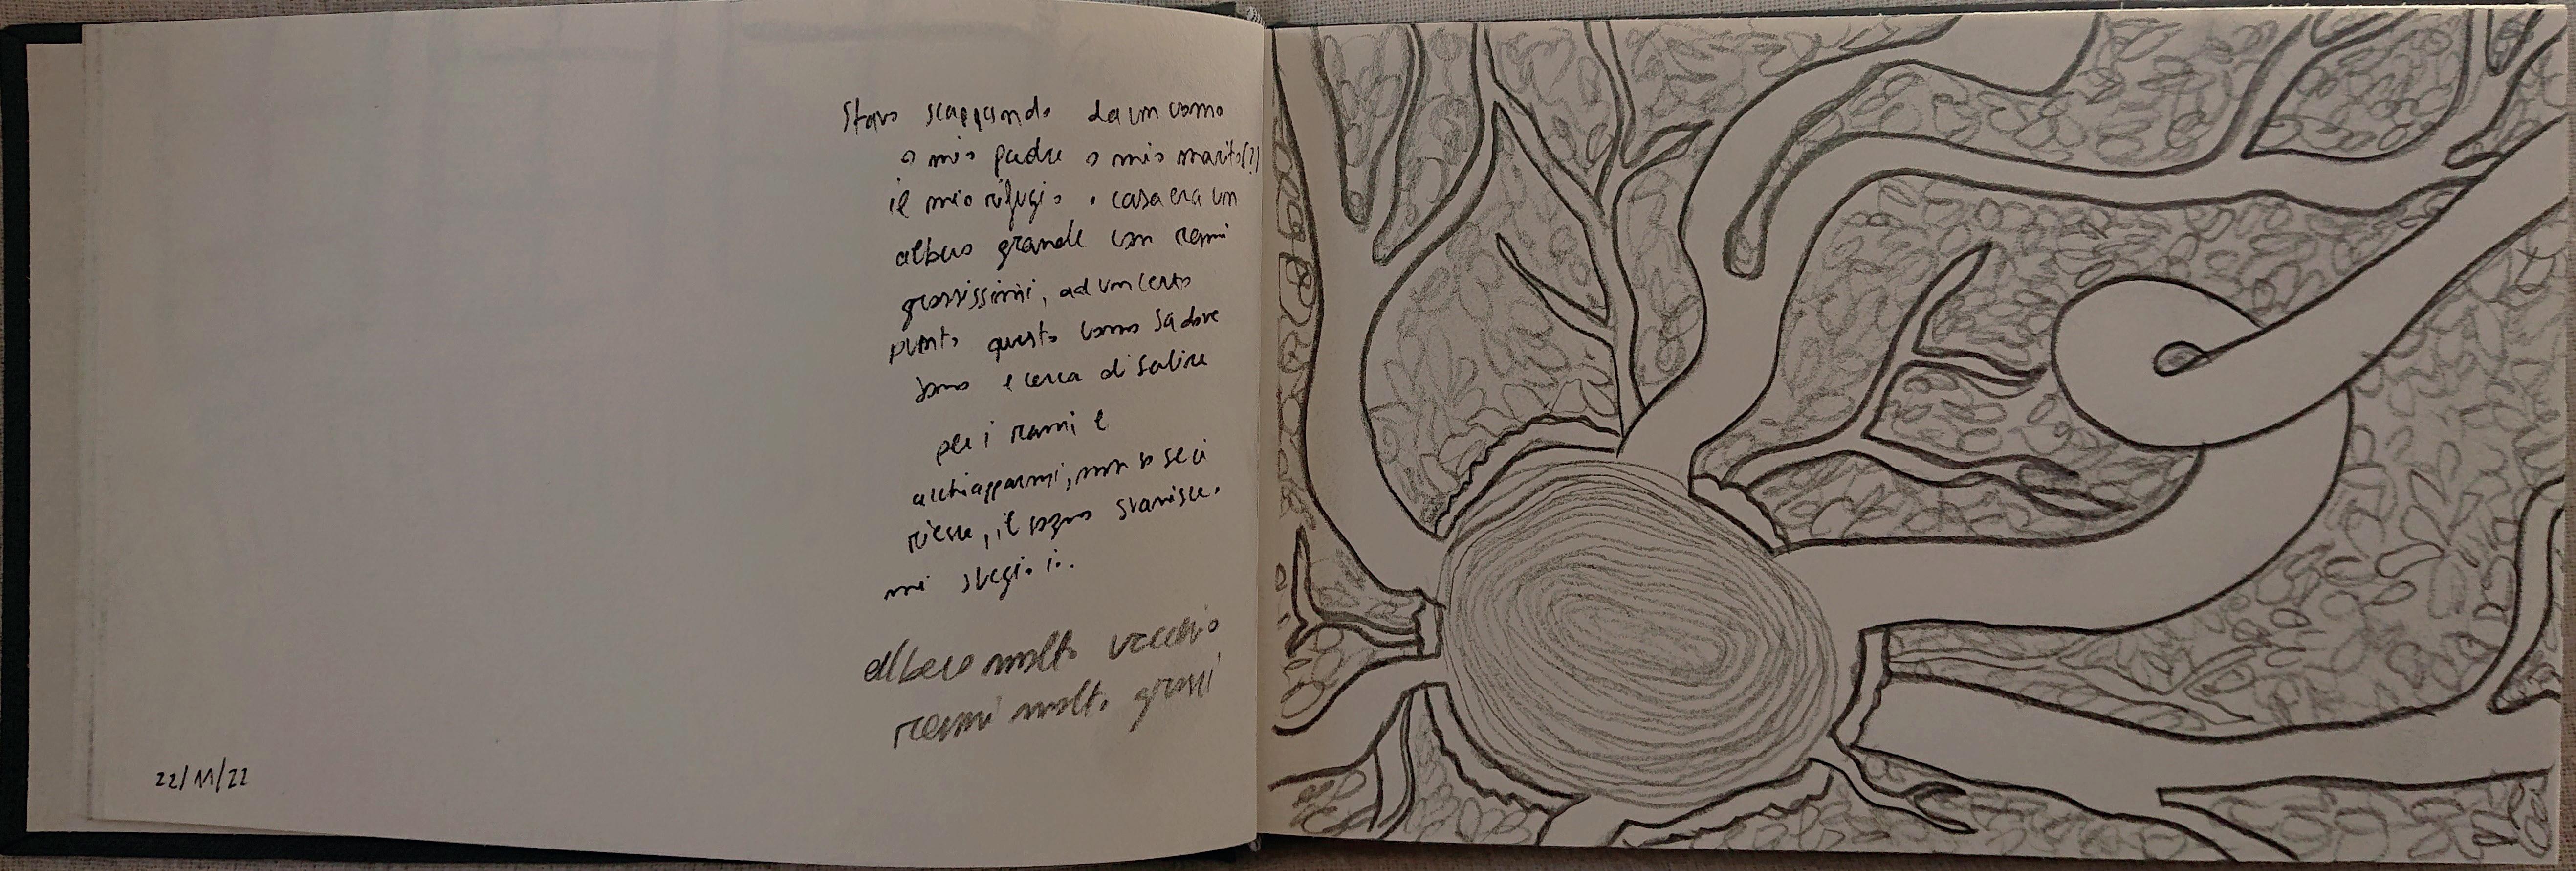 Stavo scappando da un uomo
o mio padre o mio marito(?)
il mio rifugio o casa era un
albero grande con rami
grossissimi, ad un certo
punto questo uomo sa dove
sono e cerca di salire
per i rami e
acchiapparmi, non so se ci
riesce, il sogno svanisce.
mi sveglio
albero molto vecchio
rami molto grossi
22/11/22